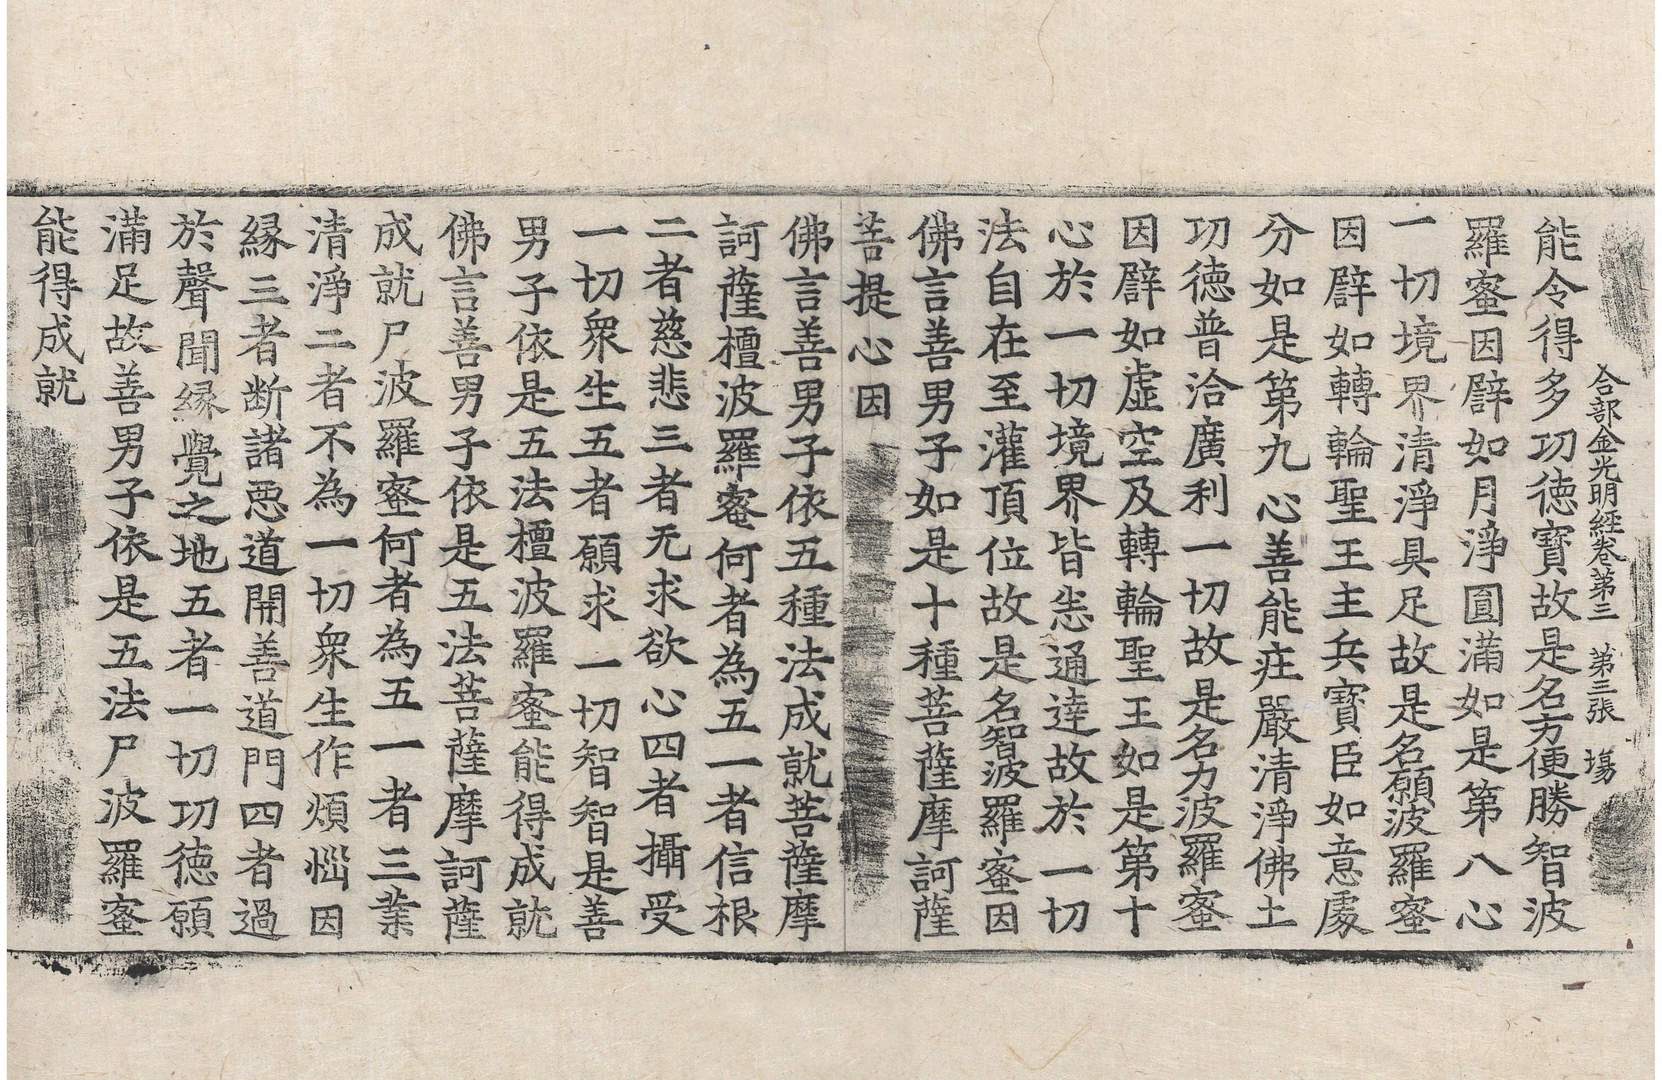 合部金光明經卷第三　第三張　場
能令得多功德寶故是名方便勝智波
羅蜜因譬如月淨圓滿如是第八心
一切境界清淨具足故是名願波羅蜜
因譬如轉輪聖王主兵寶臣如意處
分如是第九心善能庄嚴清淨佛土
功德普洽廣利一切故是名力波羅蜜
因譬如虛空及轉輪聖王如是第十
心於一切境界皆悉通達故於一切
法自在至灌頂位故是名智波羅蜜因
佛言善男子如是十種菩薩摩訶薩
菩提心因
佛言善男子依五種法成就菩薩摩
訶薩檀波羅蜜何者為五一者信根
二者慈悲三者无求欲心四者攝受
一切眾生五者願求一切智智是善
男子依是五法檀波羅蜜能得成就
佛言善男子依是五法菩薩摩訶薩
成就尸波羅蜜何者為五一者三業
清淨二者不為一切眾生作煩惱因
緣三者断諸惡道開善道門四者過
於聲聞緣覺之地五者一切功德願
滿足故善男子依是五法尸波羅蜜
能得成就